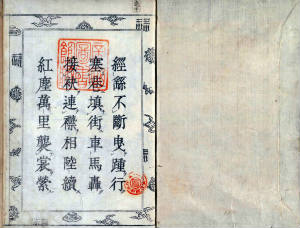 經繇不斷曳踵行
塞巷填街車馬轟
接袂連襟相陸續
紅塵萬里襲裳縈